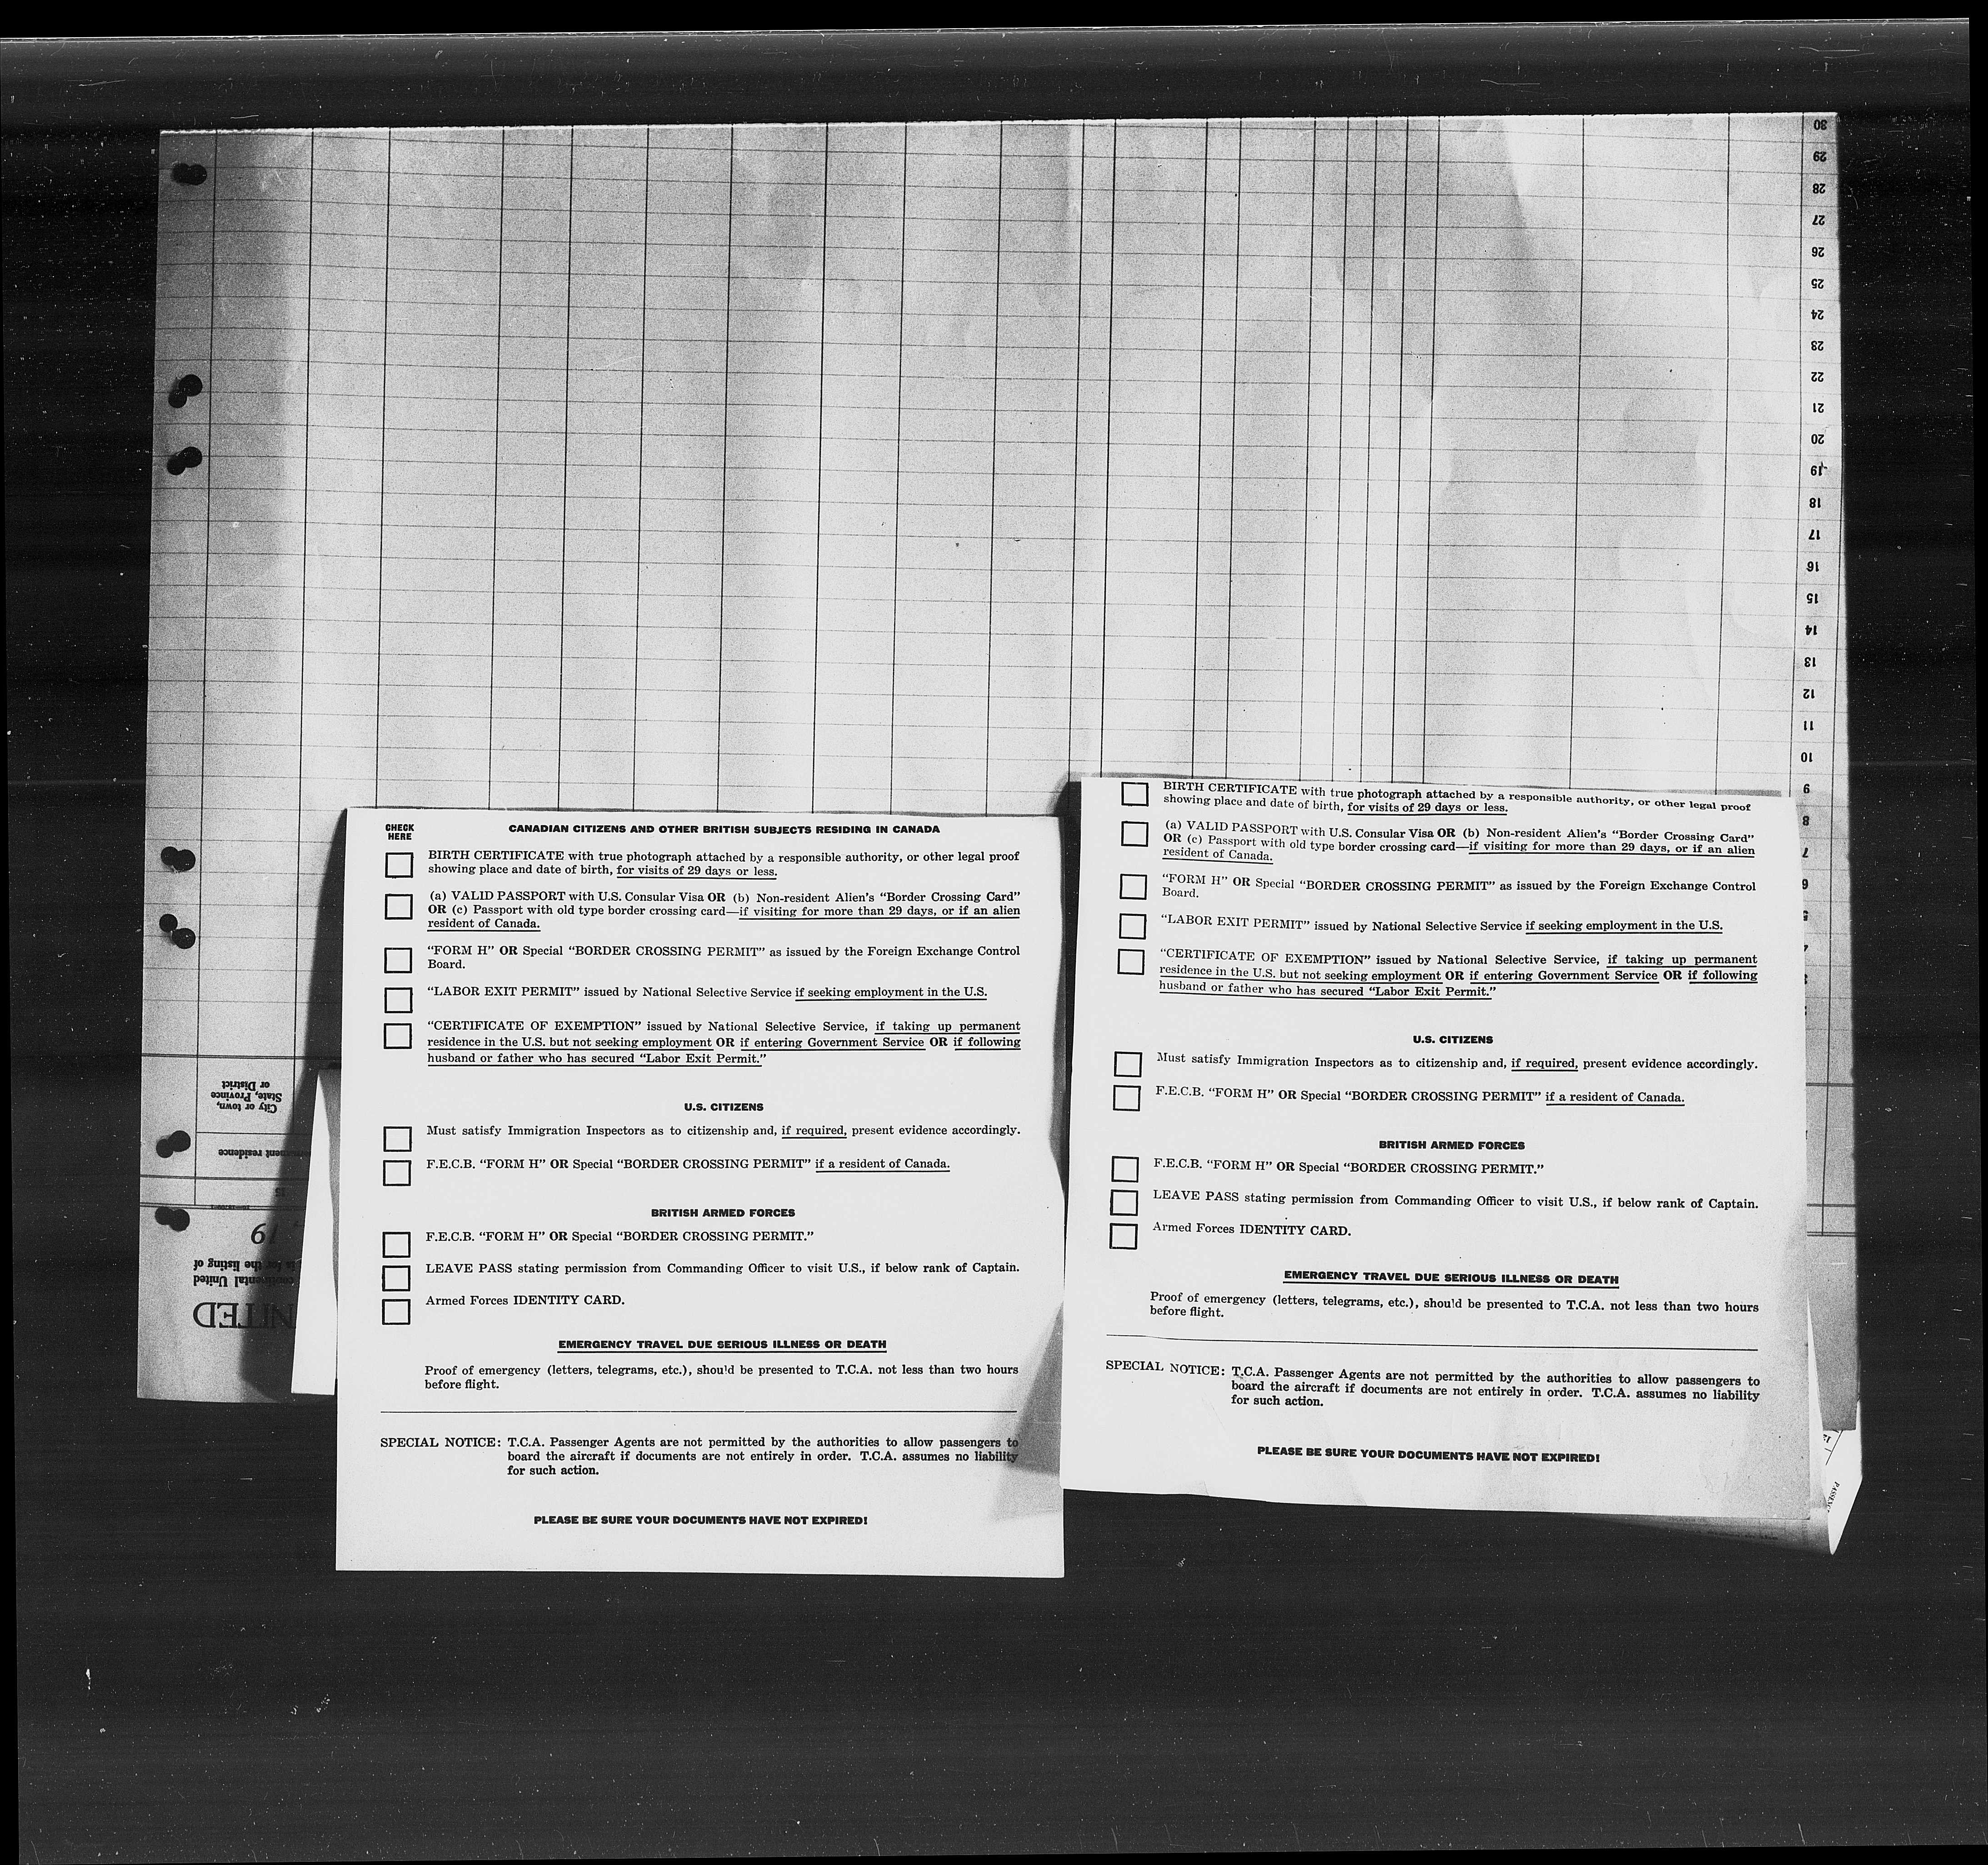 30
29
28
27
26
25
24
23
22
21
20
19
18
17
16
15
14
13
12
11
10
9
8
7
6
5
4
3
City or town,
State, Province
or District
residence
15
19
for the listing of
continental United
NITED
CHECK
HERE
CANADIAN CITIZENS AND OTHER BRITISH SUBJECTS RESIDING IN CANADA
BIRTH CERTIFICATE with true photograph attached by a responsible authority, or other legal proof
showing place and date of birth, for visits of 29 days or less.
(a) VALID PASSPORT with U.S. Consular Visa OR (b) Non-resident Alien's “Border Crossing Card”
OR (c) Passport with old type border crossing card—if visiting for more than 29 days, or if an alien
resident of Canada.
“FORM H” OR Special “BORDER CROSSING PERMIT” as issued by the Foreign Exchange Control
Board.
“LABOR EXIT PERMIT” issued by National Selective Service if seeking employment in the U.S.
“CERTIFICATE OF EXEMPTION” issued by National Selective Service, if taking up permanent
residence in the U.S. but not seeking employment OR if entering Government Service OR if following
husband or father who has secured “Labor Exit Permit.”
U.S. CITIZENS
Must satisfy Immigration Inspectors as to citizenship and, if required, present evidence accordingly.
F.E.C.B. “FORM H” OR Special “BORDER CROSSING PERMIT” if a resident of Canada.
BRITISH ARMED FORCES
F.E.C.B. “FORM H” OR Special “BORDER CROSSING PERMIT.”
LEAVE PASS stating permission from Commanding Officer to visit U.S., if below rank of Captain.
Armed Forces IDENTITY CARD.
EMERGENCY TRAVEL DUE SERIOUS ILLNESS OR DEATH
Proof of emergency (letters, telegrams, etc.), should be presented to T.C.A. not less than two hours
before flight.
SPECIAL NOTICE: T.C.A. Passenger Agents are not permitted by the authorities to allow passengers to
board the aircraft if documents are not entirely in order. T.C.A. assumes no liability
for such action.
PLEASE BE SURE YOUR DOCUMENTS HAVE NOT EXPIRED!
BIRTH CERTIFICATE with true photograph attached by a responsible authority, or other legal proof
showing place and date of birth, for visits of 29 days or less.
(a) VALID PASSPORT with U.S. Consular Visa OR (b) Non-resident Alien's “Border Crossing Card”
OR (c) Passport with old type border crossing card—if visiting for more than 29 days, or if an alien
resident of Canada.
“FORM H” OR Special “BORDER CROSSING PERMIT” as issued by the Foreign Exchange Control
Board.
“LABOR EXIT PERMIT” issued by National Selective Service if seeking employment in the U.S.
“CERTIFICATE OF EXEMPTION” issued by National Selective Service, if taking up permanent
residence in the U.S. but not seeking employment OR if entering Government Service OR if following
husband or father who has secured “Labor Exit Permit.”
U.S. CITIZENS
Must satisfy Immigration Inspectors as to citizenship and, if required, present evidence accordingly.
F.E.C.B. “FORM H” OR Special “BORDER CROSSING PERMIT” if a resident of Canada.
BRITISH ARMED FORCES
F.E.C.B. “FORM H” OR Special “BORDER CROSSING PERMIT.”
LEAVE PASS stating permission from Commanding Officer to visit U.S., if below rank of Captain.
Armed Forces IDENTITY CARD.
EMERGENCY TRAVEL DUE SERIOUS ILLNESS OR DEATH
Proof of emergency (letters, telegrams, etc.), should be presented to T.C.A. not less than two hours
before flight.
SPECIAL NOTICE: T.C.A. Passenger Agents are not permitted by the authorities to allow passengers to
board the aircraft if documents are not entirely in order. T.C.A. assumes no liability
for such action.
PLEASE BE SURE YOUR DOCUMENTS HAVE NOT EXPIRED!